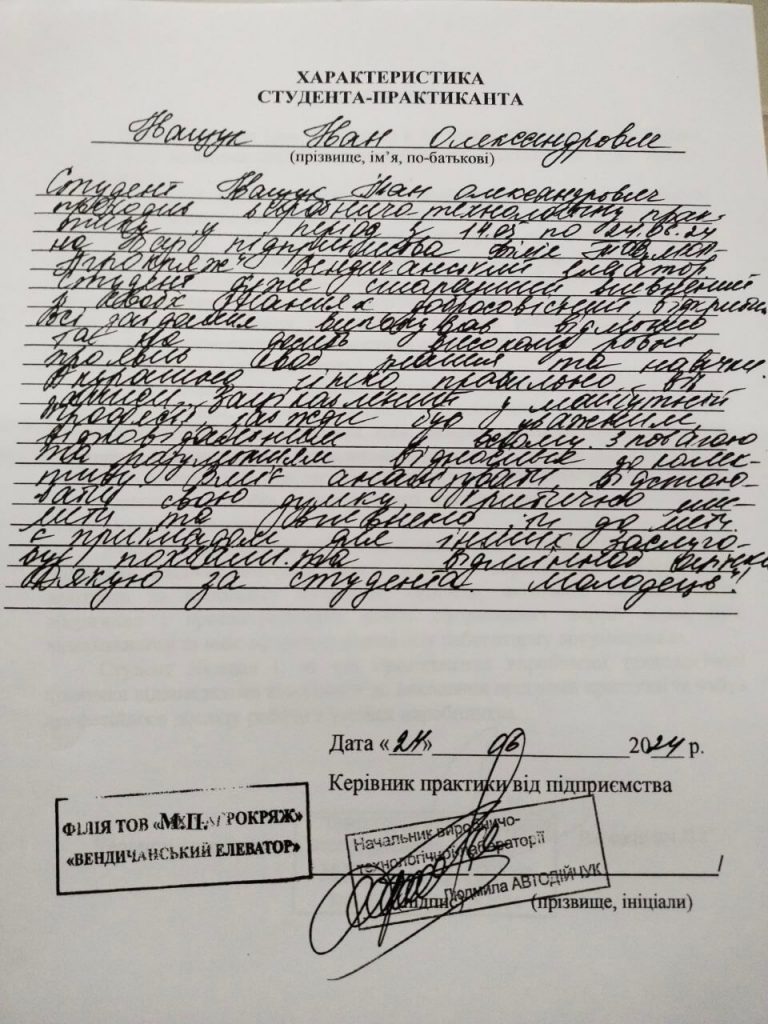 ХАРАКТЕРИСТИКА
СТУДЕНТА-ПРАКТИКАНТА
Іван Олександрович
(прізвище, ім’я, по-батькові)
Студент Іван Олександрович
проходив виробничо-технологічну прак-
тику у період з 14.05 по 24.06.24
на підприємства
Агрокряж" Вендичанський елеватор
Студент дуже старанний впевнений
в своїх знаннях добросовісний, відкритий
Всі завдання виконував відмінно
та на високому рівні
проявив свої знання та навички.
чітко правильно
записи. Зацікавлений у майбутній
професії, завжди був уважним,
відповідальним у всьому. З повагою
та розумінням відносився до колек-
тиву. Вміє аналізувати, відстою-
вати свою думку, критично мис-
лити та впевнено іти до мети.
Є прикладом для інших заслуго-
вує похвали та відмінної оцінки
Дякую за студента. Молодець!
Дата «24» 06 2024 р.
Керівник практики від підприємства
ФІЛІЯ ТОВ «М.П. АГРОКРЯЖ»
«ВЕНДИЧАНСЬКИЙ ЕЛЕВАТОР»
Начальник виробничо-
технологічної лабораторії
Людмила АВТОДІЙЧУК
(підпис) (прізвище, ініціали)